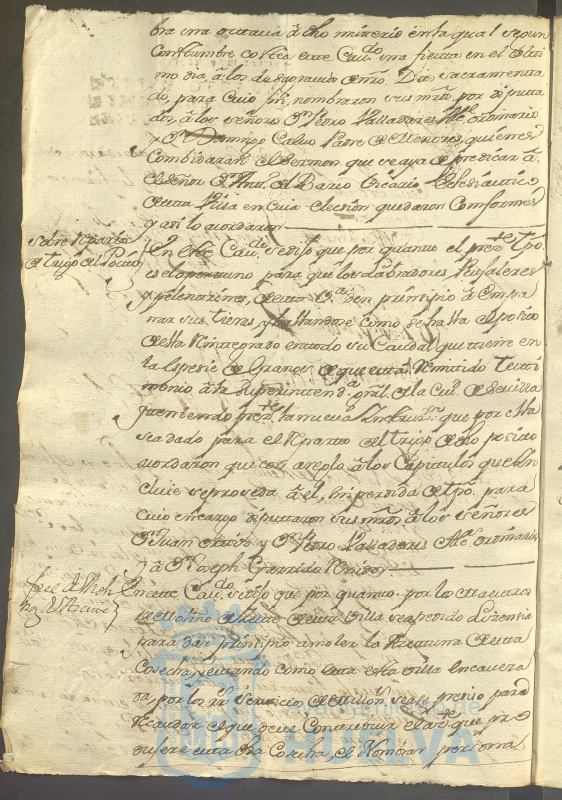 bra una octava à dho misterio en la qual segun
Costumbre costea este Cav.do una fiesta en el ulti
mo dia, à los desagravios de nro. Dios sacramenta
do, para cuio fin, nombraron sus mrds. por diputa
dos à los señores Dn Pedro Valladares Alc.e ordinario
y Dn Domingo Calvo Padre de Menores, quienes
Combidaran el sermon que se aya de predicar à
el señor Dn Ant.o del Barco Vicario Eclesiastico
de esta Villa en cuia eleccion quedaron Comformes
y asi lo acordaron
sobre Reparto
de trigo del Posito
En este Cav.do se dijo que por quanto el pres.te tpo.
es el oportuno para que los Labradores Pujaleres
y pelentrines, de esta V.a den prinsipio à empa
nar sus tieras, y hallandose como se halla el posito
de ella Reintegrado en todo su Caudal que tiene en
la espesie de Granos de que està Remitido testi
monio à la superintend.a gral. de la Ciu.d de Sevilla
y teniendo pres.te la nueva Instruc.on que por ella
sea dado para el Reparto del trigo de dho posito
acordaron que con areglo à los Capitulos que in
cluie se proveda à el, sin perdida de tpo. para
cuio encargo diputaron sus mrds. à los señores
Dn Juan y Dn Pedro Valladares Alc.es ordinarios
y à Dn Joseph Garrido Rexidor
fiel del Moli
no de Aceite
En este Cav.do se dijo que por quanto por los Maestros
de Molino de Aceite de esta villa se a pedido Lizensia
para dar prinsipio à moler la Azeituna de esta
Cosecha, y estando como esta esta villa encavesa
da por los rs. servicios de Millon.s es presiso para
Recaudar el que deve Contribuir el Az.te que pro
dusere esta dha Cosecha, el Nombrar persona
HUELVA